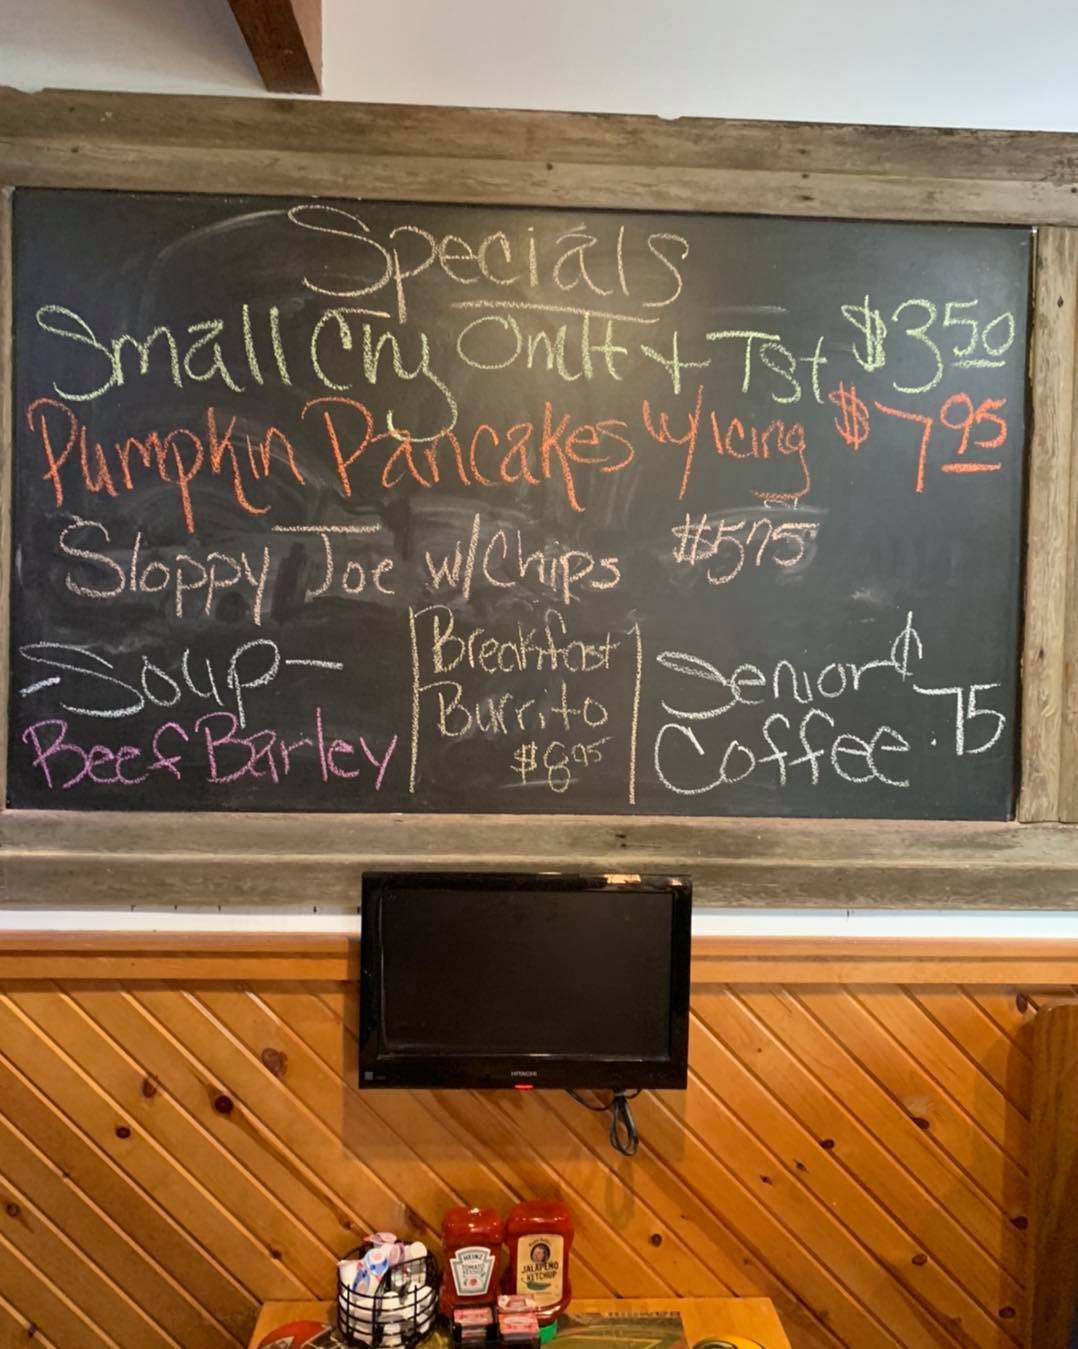 Specials
Small Chy Omlt + Tst $3.50
Pumpkin Pancakes w/ Icing $7.95
Sloppy Joe w/Chips $5.75
-Soup-
Beef Barley
Breakfast
Burrito
$8.95
Senior ¢
Coffee .75
HITACHI
HEINZ
TOMATO
KETCHUP
JALAPENO
KETCHUP